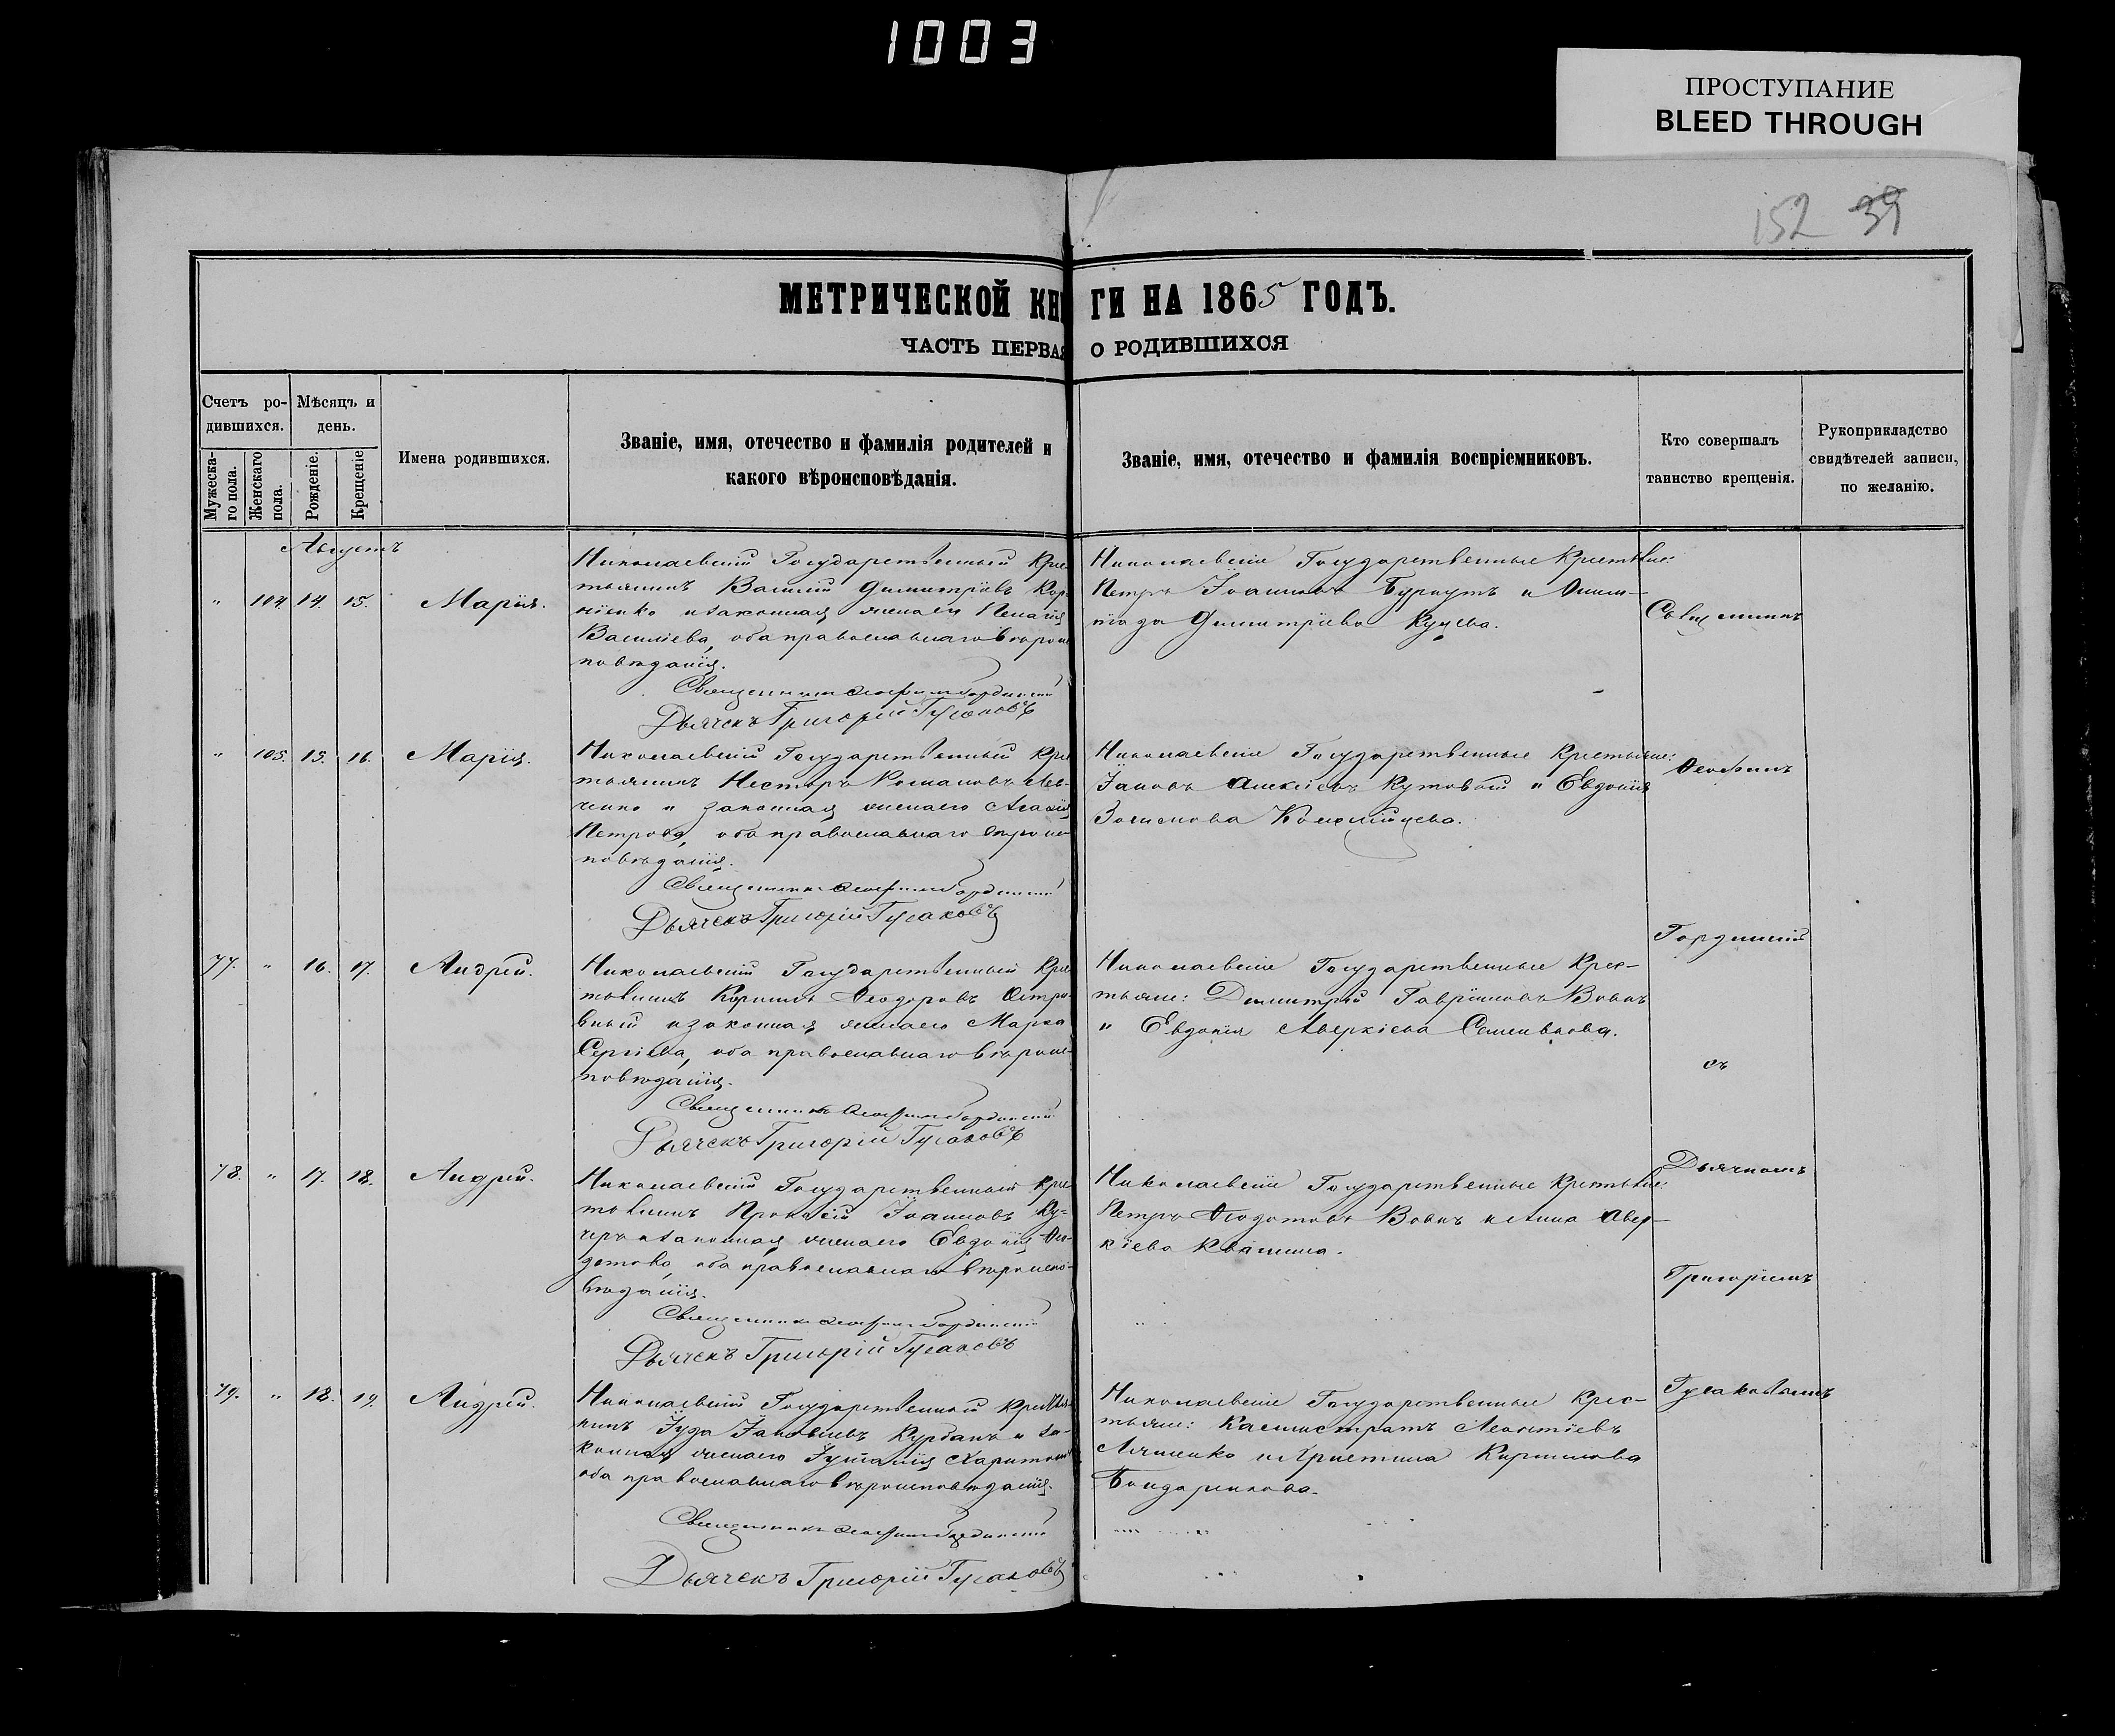 1003
ПРОСТУПАНИЕ
BLEED THROUGH
152 39
МЕТРИЧЕСКОЙ КНИГИ НА 1865 ГОДЪ.
ЧАСТЬ ПЕРВАЯ О РОДИВШИХСЯ
Счетъ ро-
дившихся.
Мужеска-
го пола.
Женскаго
пола.
Мѣсяцъ и
день.
Рожденіе.
Крещеніе
Имена родившихся.
Званіе, имя, отечество и фамилія родителей и
какого вѣроисповѣданія.
Званіе, имя, отечество и фамилія воспріемниковъ.
Кто совершалъ
таинство крещенія.
Рукоприкладство
свидѣтелей записи,
по желанію.
Августъ
" 104. 14. 15. Марія.
Николаевскій Государственный Крес
тьянинъ Василій Димитріевъ
и законная жена его Пелагія
Василіева, оба православнаго вѣроис
повѣданія.
Священникъ Гординскій
Дьячекъ Григорій Гусаковъ
Николаевскіе Государственные Крестьяне:
Петръ Іоанновъ Бурнутъ и
Димитріева Куцева.
" 105. 15. 16. Марія.
Николаевскій Государственный Крес
тьянинъ Несторъ Романовъ Лев-
ченко и законная жена его Агафія
Петрова, оба православнаго вѣроис
повѣданія.
Священникъ Гординскій
Дьячекъ Григорій Гусаковъ
Николаевскіе Государственные Крестьяне:
Іаковъ Алексіевъ Кутовой и Евдокія
Коломійцева.
77. " 16. 17. Андрей.
Николаевскій Государственный Крес
тьянинъ Кориилъ Ѳеодоровъ Остро-
вный и законная жена его Марѳа
Сергіева, оба православнаго вѣроис-
повѣданія.
Священникъ Гординскій
Дьячекъ Григорій Гусаковъ
Николаевскіе Государственные Крес-
тьяне: Димитрій Гавріиловъ Вовкъ
и Евдокія Аверкіева Семенькова.
78. " 17. 18. Андрей.
Николаевскій Государственный Крес
тьянинъ Прокопій Іоанновъ Ку-
черъ и законная жена его Евдокія Ѳео-
дотова, оба православнаго вѣроиспо-
вѣданія.
Священникъ Гординскій
Дьячекъ Григорій Гусаковъ
Николаевскіе Государственные Крестьяне:
Петръ Ѳеодотовъ Вовкъ и Анна Авер-
кіева Квашина.
79. " 18. 19. Андрей.
Николаевскій Государственный Крестья
нинъ Іуда Іаковлевъ Курбанъ и за-
конная жена его Іуліанія Харитонова
оба православнаго вѣроисповѣданія.
Священникъ Гординскій
Дьячекъ Григорій Гусаковъ
Николаевскіе Государственные Крес-
тьяне: Каллистратъ Леонтіевъ
Ляшенко и Христина Кириллова
Бондаренкова.
Священникъ
Гординскій
съ
Дьячкомъ
Григоріемъ
Гусаковымъ